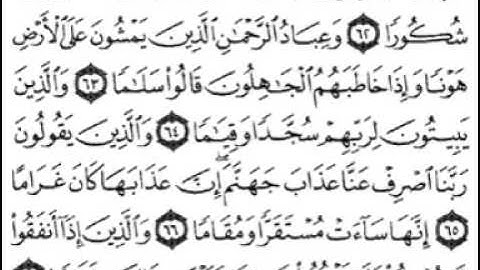 شُكُورًا ٦٢ وَعِبَادُ الرَّحْمَٰنِ الَّذِينَ يَمْشُونَ عَلَى الْأَرْضِ
هَوْنًا وَإِذَا خَاطَبَهُمُ الْجَاهِلُونَ قَالُوا سَلَامًا ٦٣ وَالَّذِينَ
يَبِيتُونَ لِرَبِّهِمْ سُجَّدًا وَقِيَامًا ٦٤ وَالَّذِينَ يَقُولُونَ
رَبَّنَا اصْرِفْ عَنَّا عَذَابَ جَهَنَّمَ إِنَّ عَذَابَهَا كَانَ غَرَامًا
٦٥ إِنَّهَا سَاءَتْ مُسْتَقَرًّا وَمُقَامًا ٦٦ وَالَّذِينَ إِذَا أَنفَقُوا